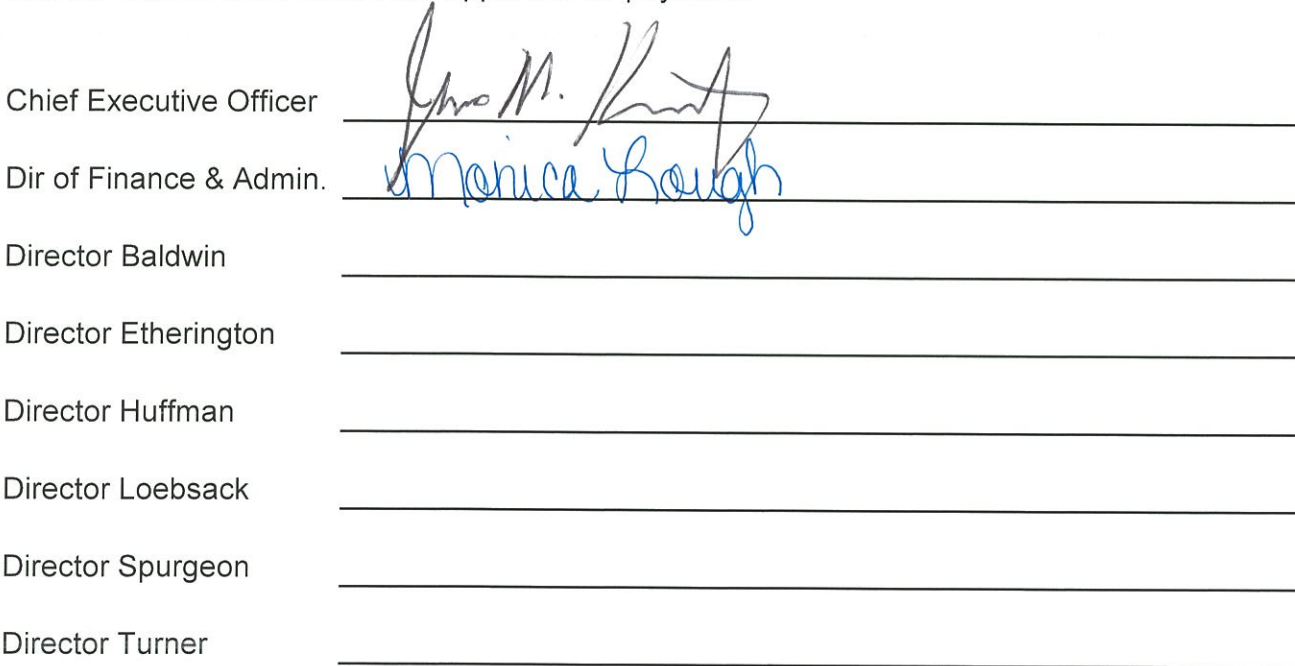 Chief Executive Officer
Dir of Finance & Admin. Monica Lough
Director Baldwin
Director Etherington
Director Huffman
Director Loebsack
Director Spurgeon
Director Turner